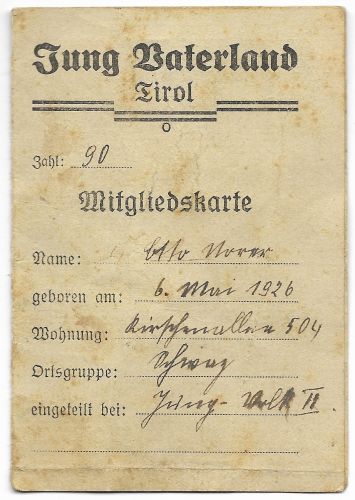 Jung Vaterland
Tirol
Zahl: 90
Mitgliedskarte
Name: Otto
geboren am: 6. Mai 1926
Wohnung: 504
Ortsgruppe: Schwaz
eingeteilt bei: Jung-Volk II